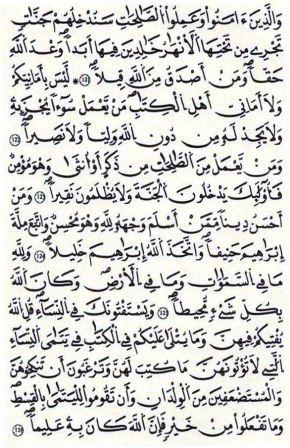 وَالَّذِينَ ءَامَنُوا۟ وَعَمِلُوا۟ الصَّٰلِحَٰتِ سَنُدْخِلُهُمْ جَنَّٰتٍ
تَجْرِى مِن تَحْتِهَا الْأَنْهَٰرُ خَٰلِدِينَ فِيهَا أَبَدًا وَعْدَ اللَّهِ
حَقًّا وَمَنْ أَصْدَقُ مِنَ اللَّهِ قِيلًا ١٢٢ لَّيْسَ بِأَمَانِيِّكُمْ
وَلَا أَمَانِىِّ أَهْلِ الْكِتَٰبِ مَن يَعْمَلْ سُوٓءًا يُجْزَ بِهِ
وَلَا يَجِدْ لَهُ مِن دُونِ اللَّهِ وَلِيًّا وَلَا نَصِيرًا ١٢٣
وَمَن يَعْمَلْ مِنَ الصَّٰلِحَٰتِ مِن ذَكَرٍ أَوْ أُنثَىٰ وَهُوَ مُؤْمِنٌ
فَأُو۟لَٰٓئِكَ يَدْخُلُونَ الْجَنَّةَ وَلَا يُظْلَمُونَ نَقِيرًا ١٢٤ وَمَنْ
أَحْسَنُ دِينًا مِّمَّنْ أَسْلَمَ وَجْهَهُ لِلَّهِ وَهُوَ مُحْسِنٌ وَاتَّبَعَ مِلَّةَ
إِبْرَٰهِيمَ حَنِيفًا وَاتَّخَذَ اللَّهُ إِبْرَٰهِيمَ خَلِيلًا ١٢٥ وَلِلَّهِ
مَا فِى السَّمَٰوَٰتِ وَمَا فِى الْأَرْضِ وَكَانَ اللَّهُ
بِكُلِّ شَىْءٍ مُّحِيطًا ١٢٦ وَيَسْتَفْتُونَكَ فِى النِّسَآءِ قُلِ اللَّهُ
يُفْتِيكُمْ فِيهِنَّ وَمَا يُتْلَىٰ عَلَيْكُمْ فِى الْكِتَٰبِ فِى يَتَٰمَى النِّسَآءِ
الَّٰتِى لَا تُؤْتُونَهُنَّ مَا كُتِبَ لَهُنَّ وَتَرْغَبُونَ أَن تَنكِحُوهُنَّ
وَالْمُسْتَضْعَفِينَ مِنَ الْوِلْدَٰنِ وَأَن تَقُومُوا۟ لِلْيَتَٰمَىٰ بِالْقِسْطِ
وَمَا تَفْعَلُوا۟ مِنْ خَيْرٍ فَإِنَّ اللَّهَ كَانَ بِهِ عَلِيمًا ١٢٧